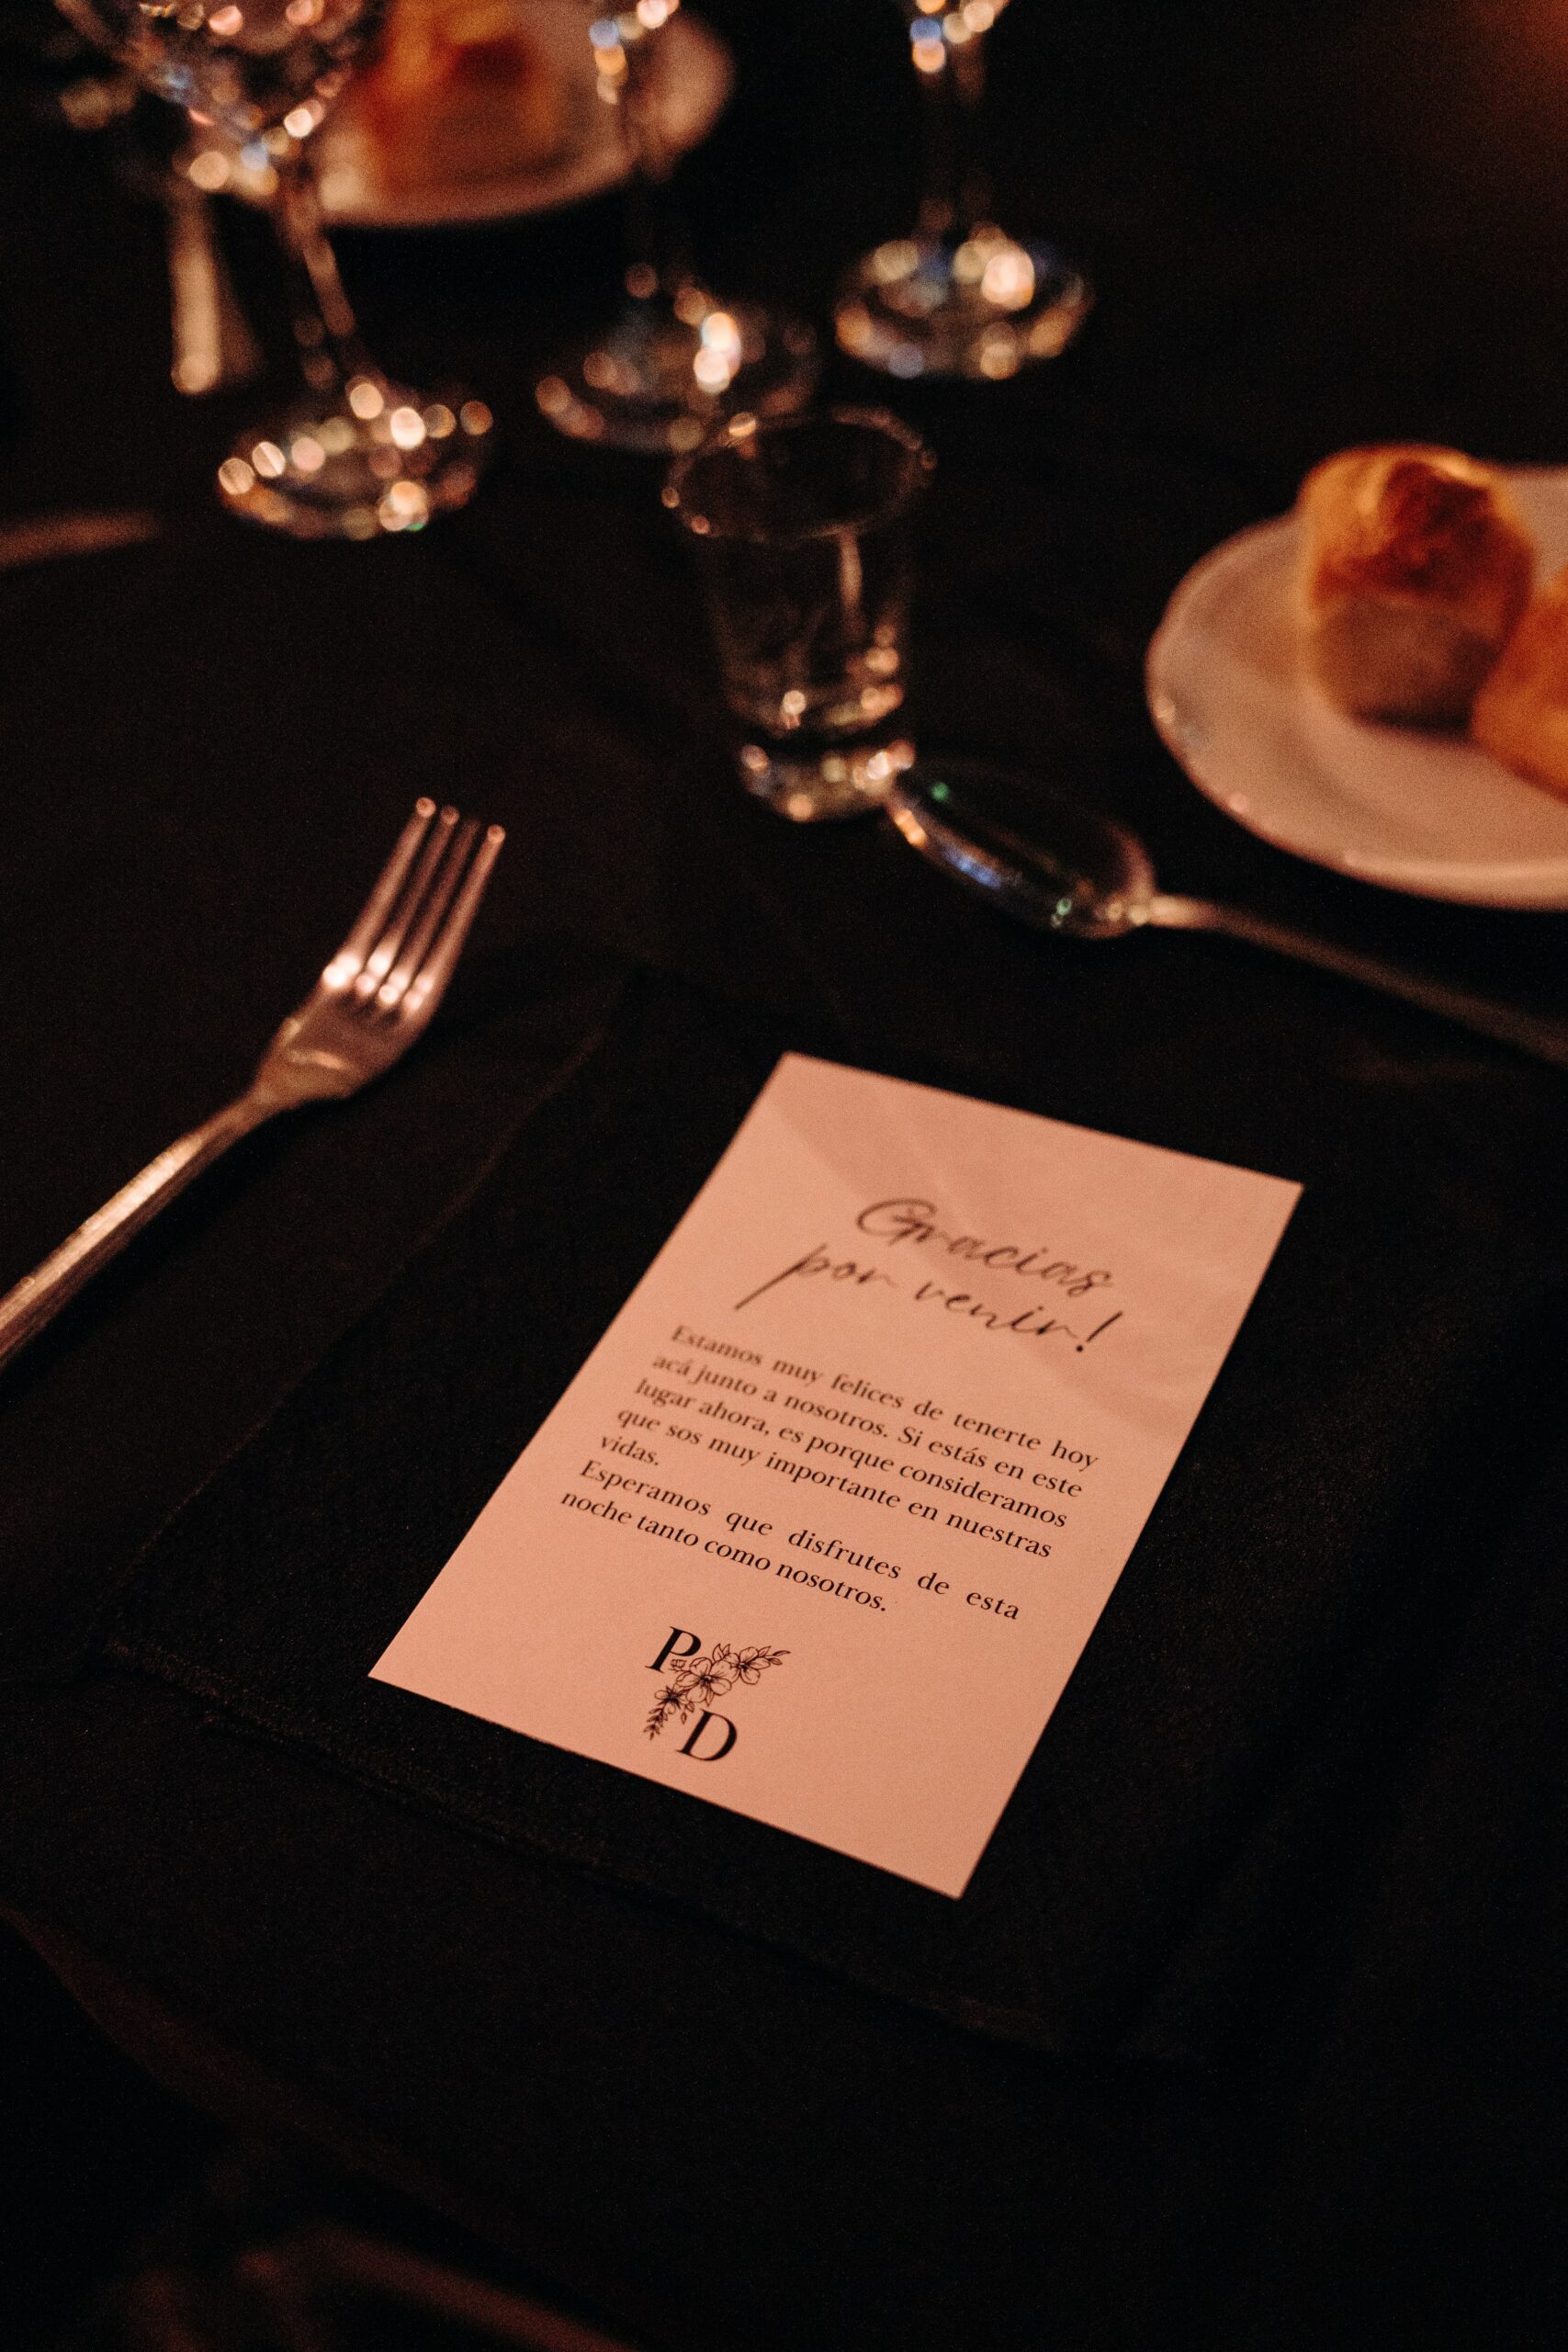 Gracias
por venir!
Estamos muy felices de tenerte hoy
acá junto a nosotros. Si estás en este
lugar ahora, es porque consideramos
que sos muy importante en nuestras
vidas.
Esperamos que disfrutes de esta
noche tanto como nosotros.
P
D